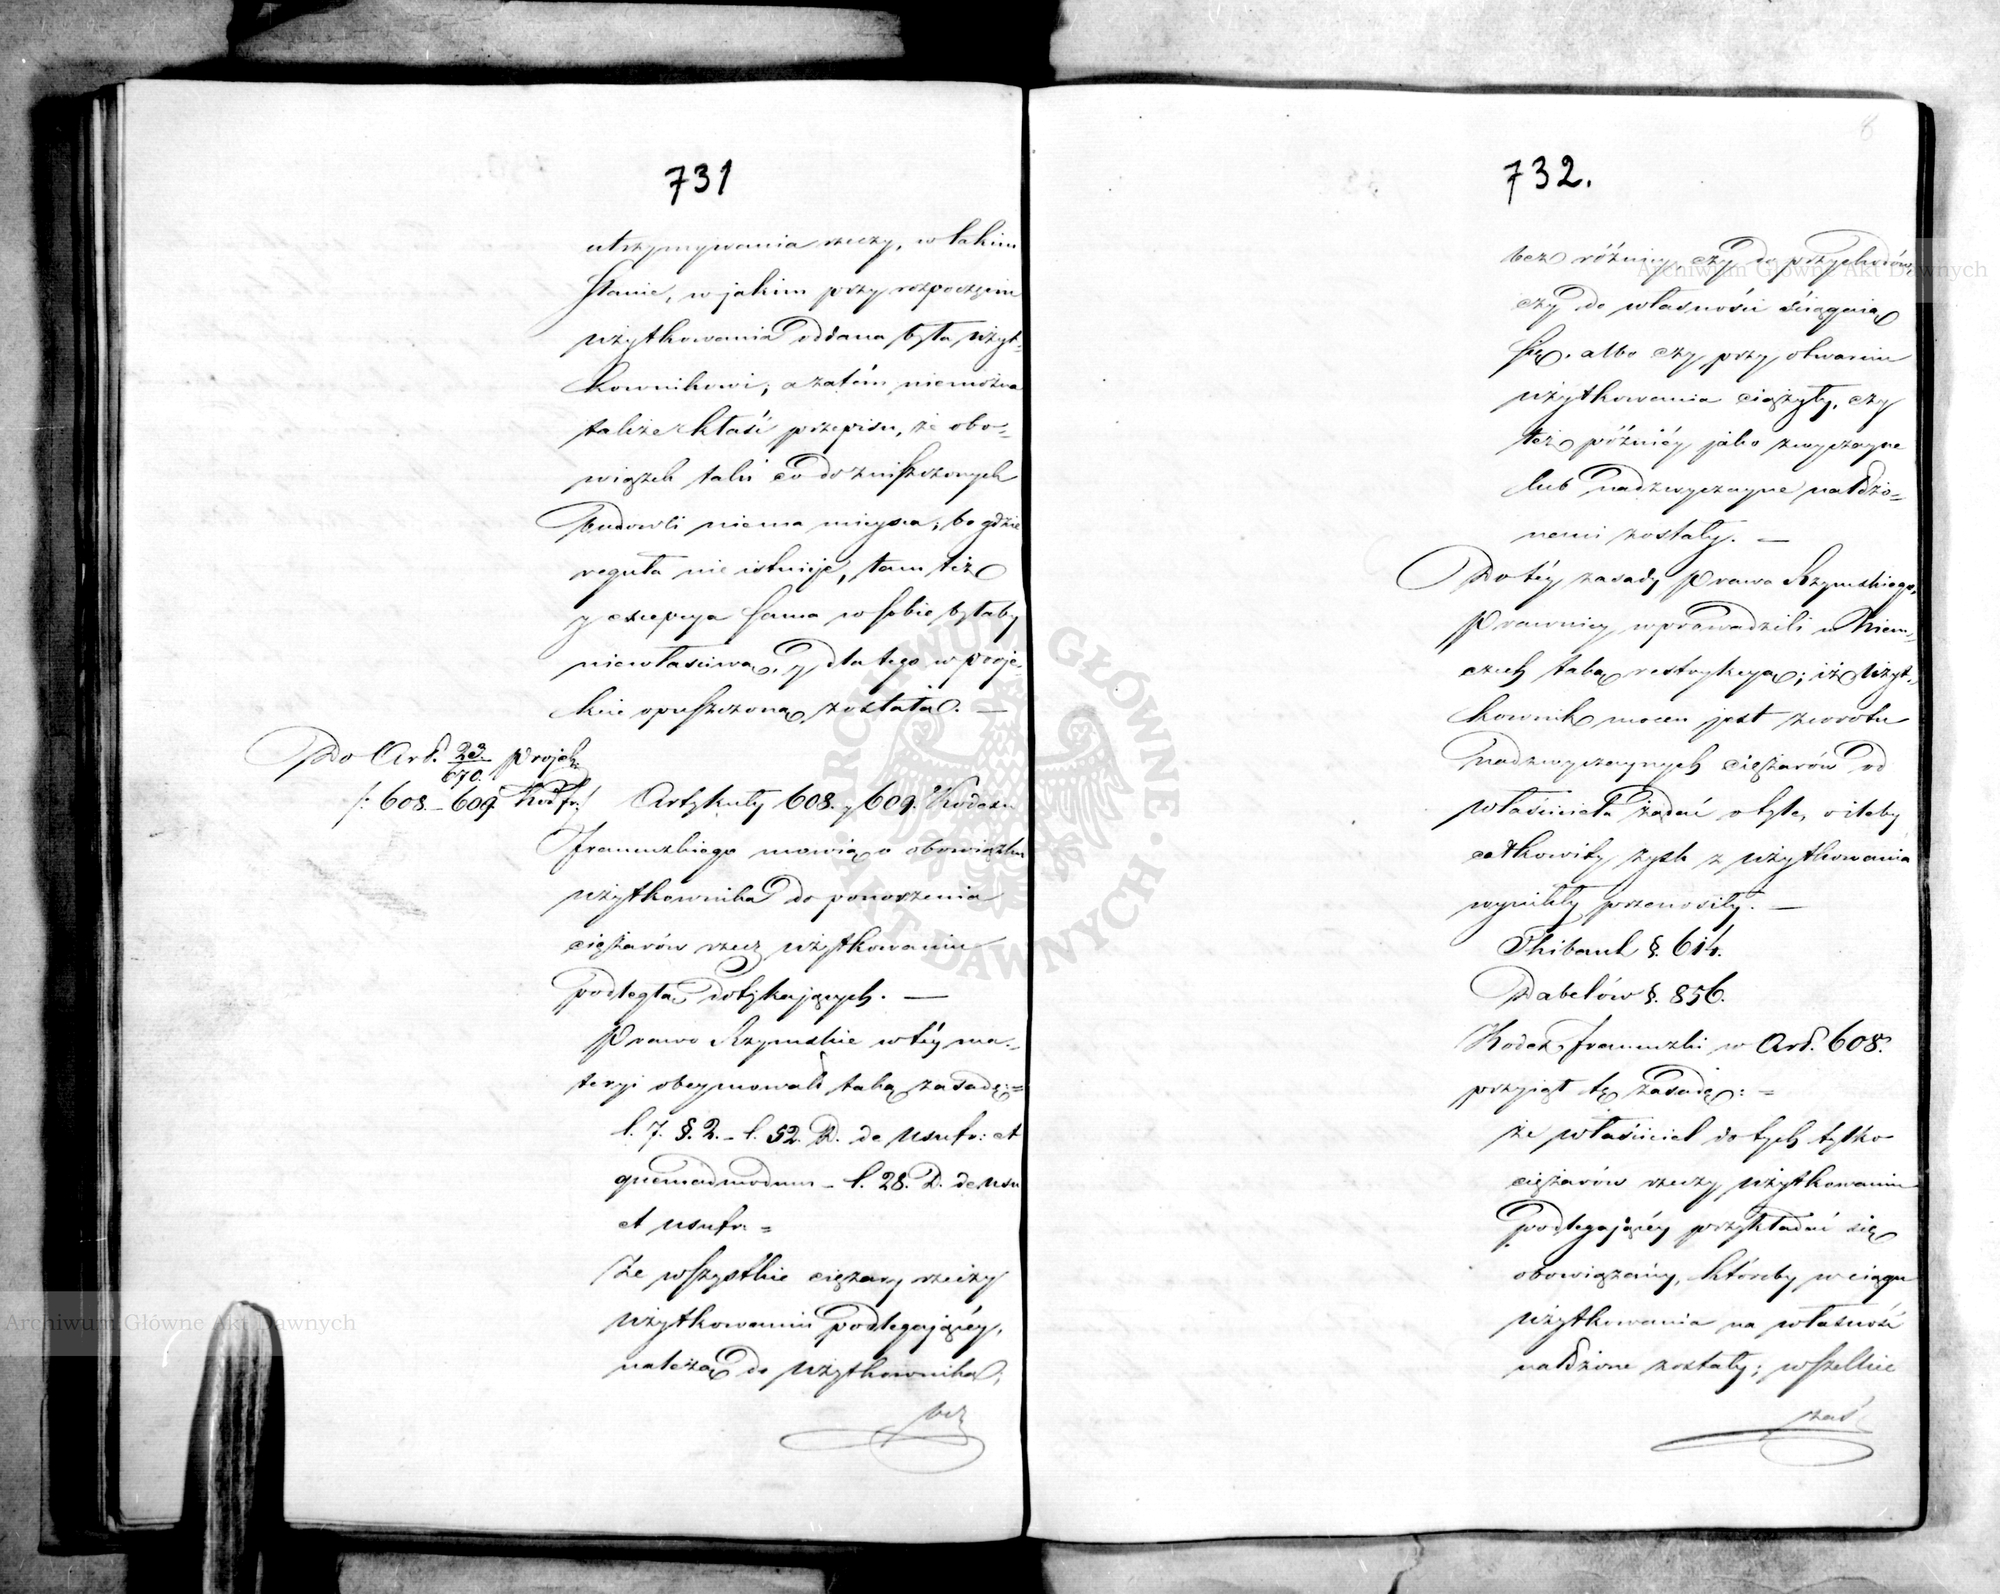 731
utrzymywania rzeczy, w takim
stanie, w jakim przy rozpoczęciu
użytkowania oddana była użyt-
kownikowi; a zatém niemożna
także kłaść przepisu, że obo-
wiązek taki co do zniszczonych
budowli niema mieysca; bo gdzie
reguła nie istnieje, tam też
y excepcya sama w sobie byłaby
niewłaściwą, y dla tego w proje-
kcie opuszczoną została. —
Do Art. 23/670. projek:
/: 608 - 609. Kod fr:/
Artykuły 608. y 609. Kodexu
francuzkiego mówią o obowiązku
użytkownika do ponoszenia
ciężarów rzecz użytkowaniu
podległą dotykających. —
Prawo Rzymskie w téy ma-
teryi obeymowało taką zasadę: =
l. 7. §. 2. - l. 52. D. de Usufr: et
quemadmodum - l. 28. D. de usu
et usufr: =
Że wszystkie ciężary rzeczy
użytkowaniu podlegającéy,
należą do użytkownika,
bez
732.
bez różnicy, czy do przychodów,
czy do własności ściągaią
się, albo czy przy otwarciu
użytkowania ciążyły, czy
też późniéy jako zwyczayne
lub nadzwyczayne nałożo-
nemi zostały. —
Do téy zasady Prawa Rzymskiego,
Prawnicy wprowadzili w Niem-
czech taką restrykcyą; iż użyt-
kownik mocen jest zwrotu
nadzwyczaynych ciężarów od
właściciela żądać o tyle, o ileby
całkowity zysk z użytkowania
wynikły przenosiły. —
Thibaut §. 614.
Dabelów §. 856.
Kodex francuzki w Art. 608.
przyiął tę zasadę: =
że właściciel do tych tylko
ciężarów rzeczy użytkowaniu
podlegającéy przykładać się
obowiązany, któreby w ciągu
użytkowania na własność
nałożone zostały; wszelkie
zaś
Archiwum Główne Akt Dawnych
Archiwum Główne Akt Dawnych
ARCHIWUM GŁÓWNE AKT DAWNYCH